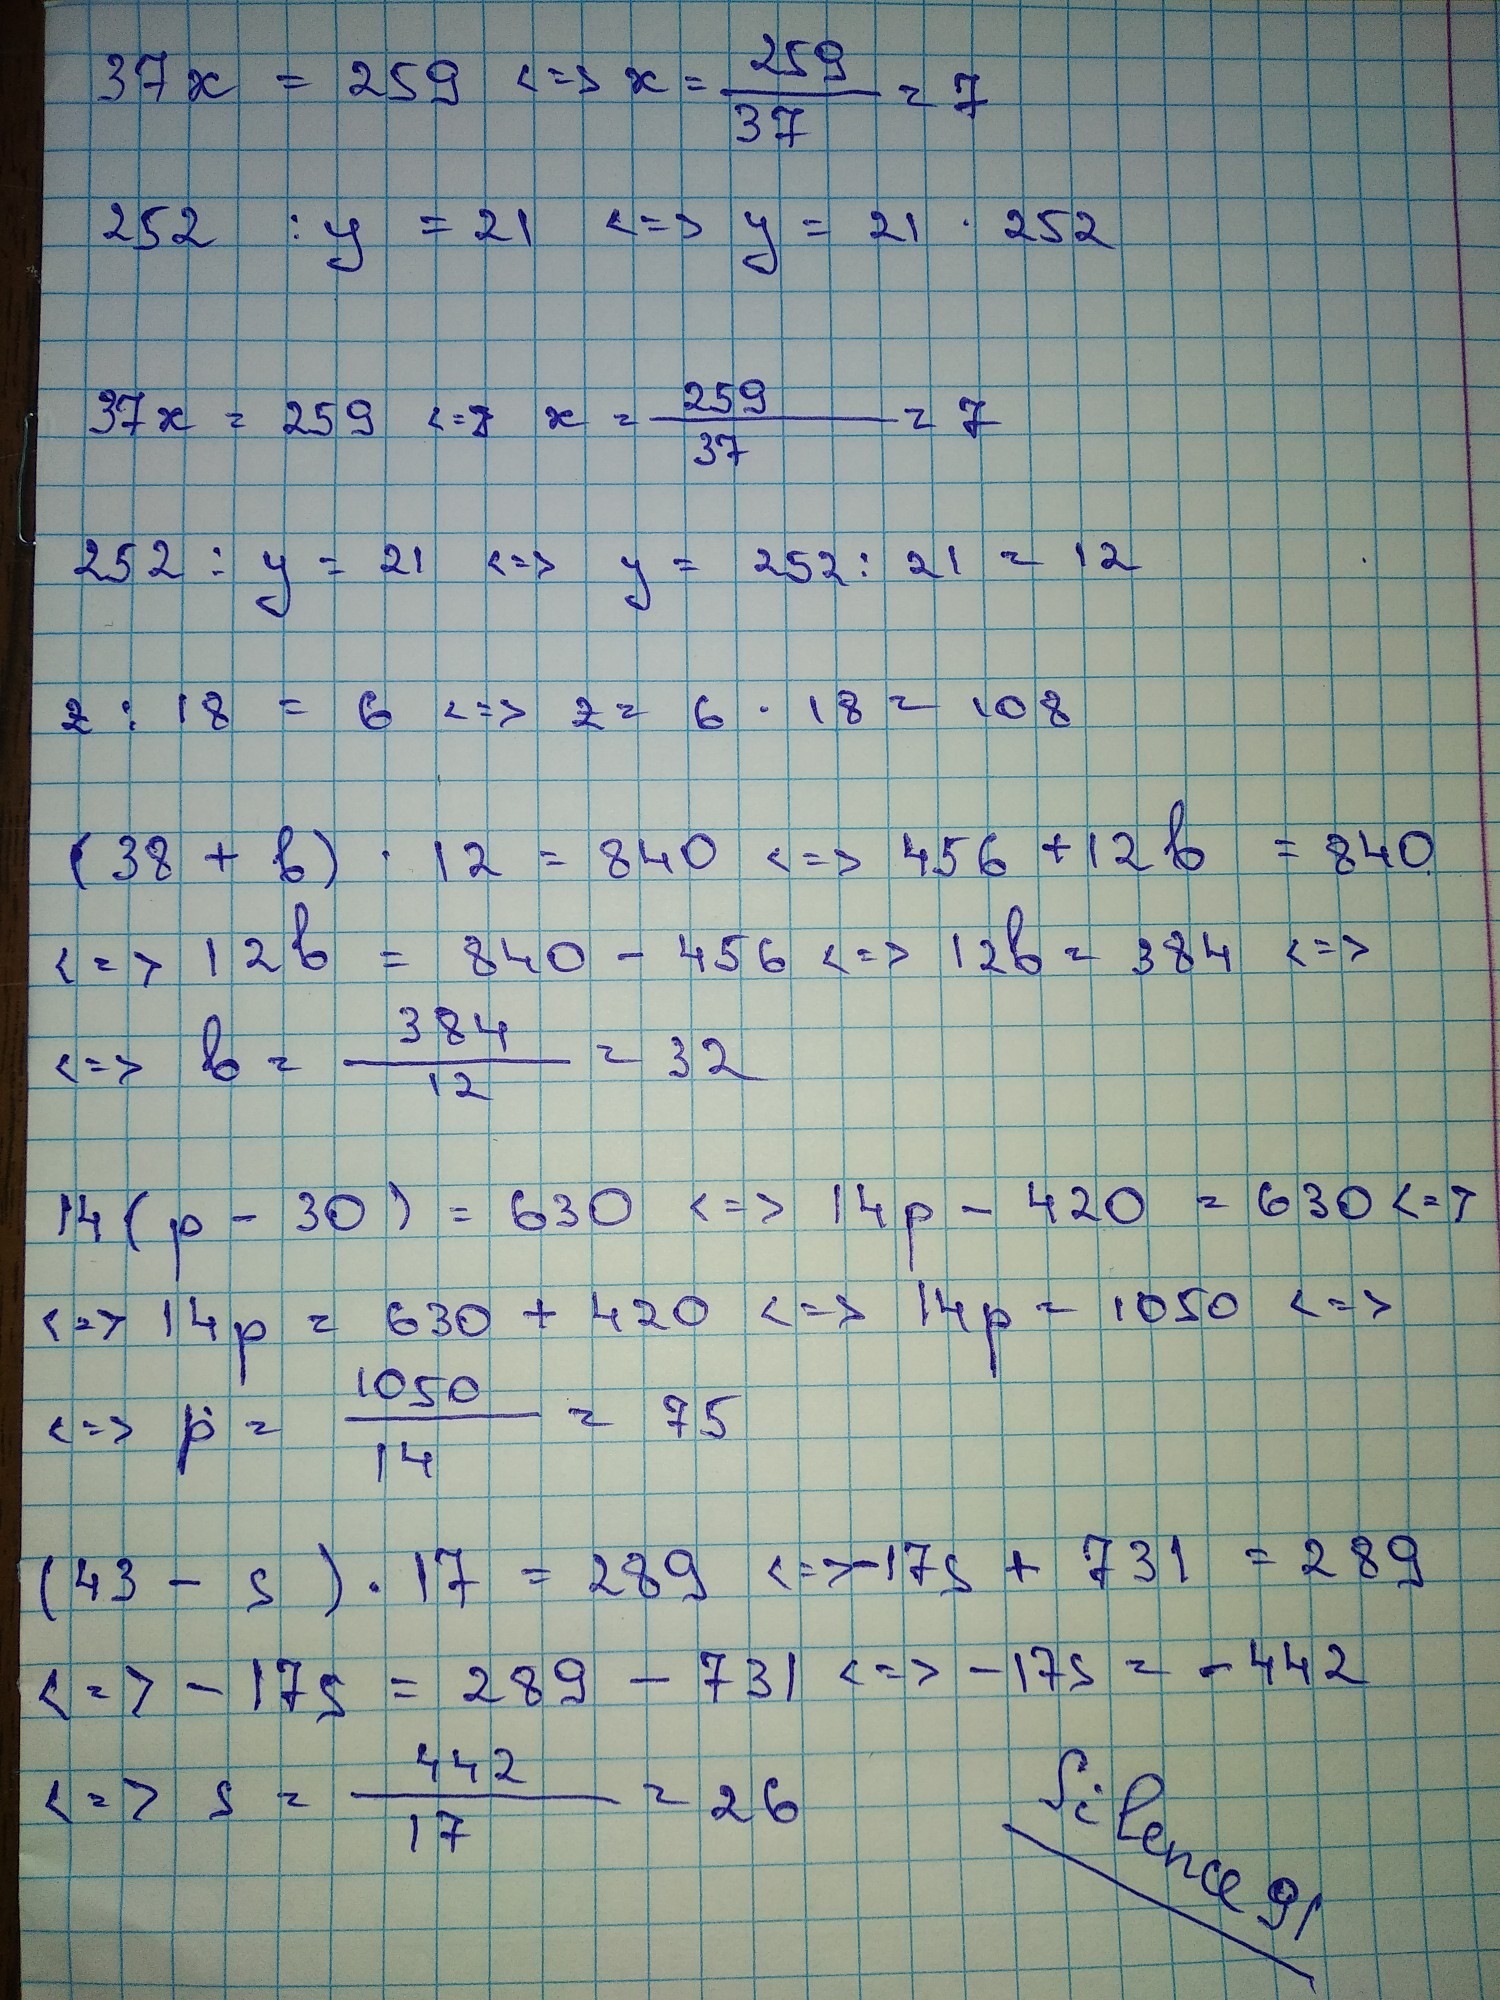 37x = 259 <=> x = 259/37 = 7
252 : y = 21 <=> y = 21 · 252
37x = 259 <=> x = 259/37 = 7
252 : y = 21 <=> y = 252 : 21 = 12
z : 18 = 6 <=> z = 6 · 18 = 108
(38 + b) · 12 = 840 <=> 456 + 12b = 840
<=> 12b = 840 - 456 <=> 12b = 384 <=>
<=> b = 384/12 = 32
14(p - 30) = 630 <=> 14p - 420 = 630 <=>
<=> 14p = 630 + 420 <=> 14p = 1050 <=>
<=> p = 1050/14 = 75
(43 - s) · 17 = 289 <=> -17s + 731 = 289
<=> -17s = 289 - 731 <=> -17s = -442
<=> s = 442/17 = 26
Silence91